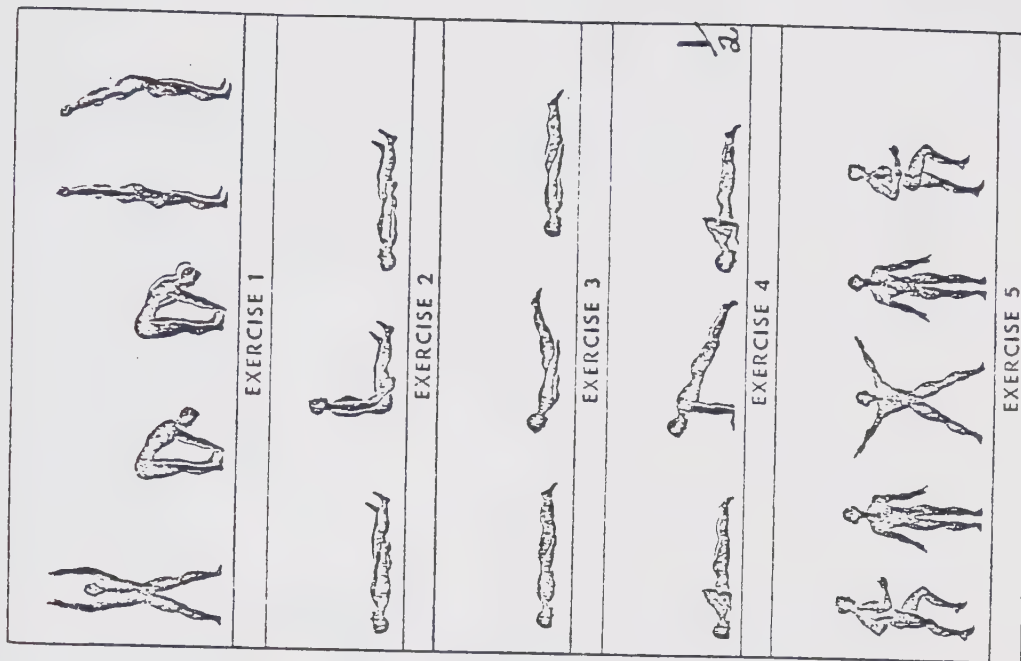 EXERCISE 1
EXERCISE 2
EXERCISE 3
1/2
EXERCISE 4
EXERCISE 5